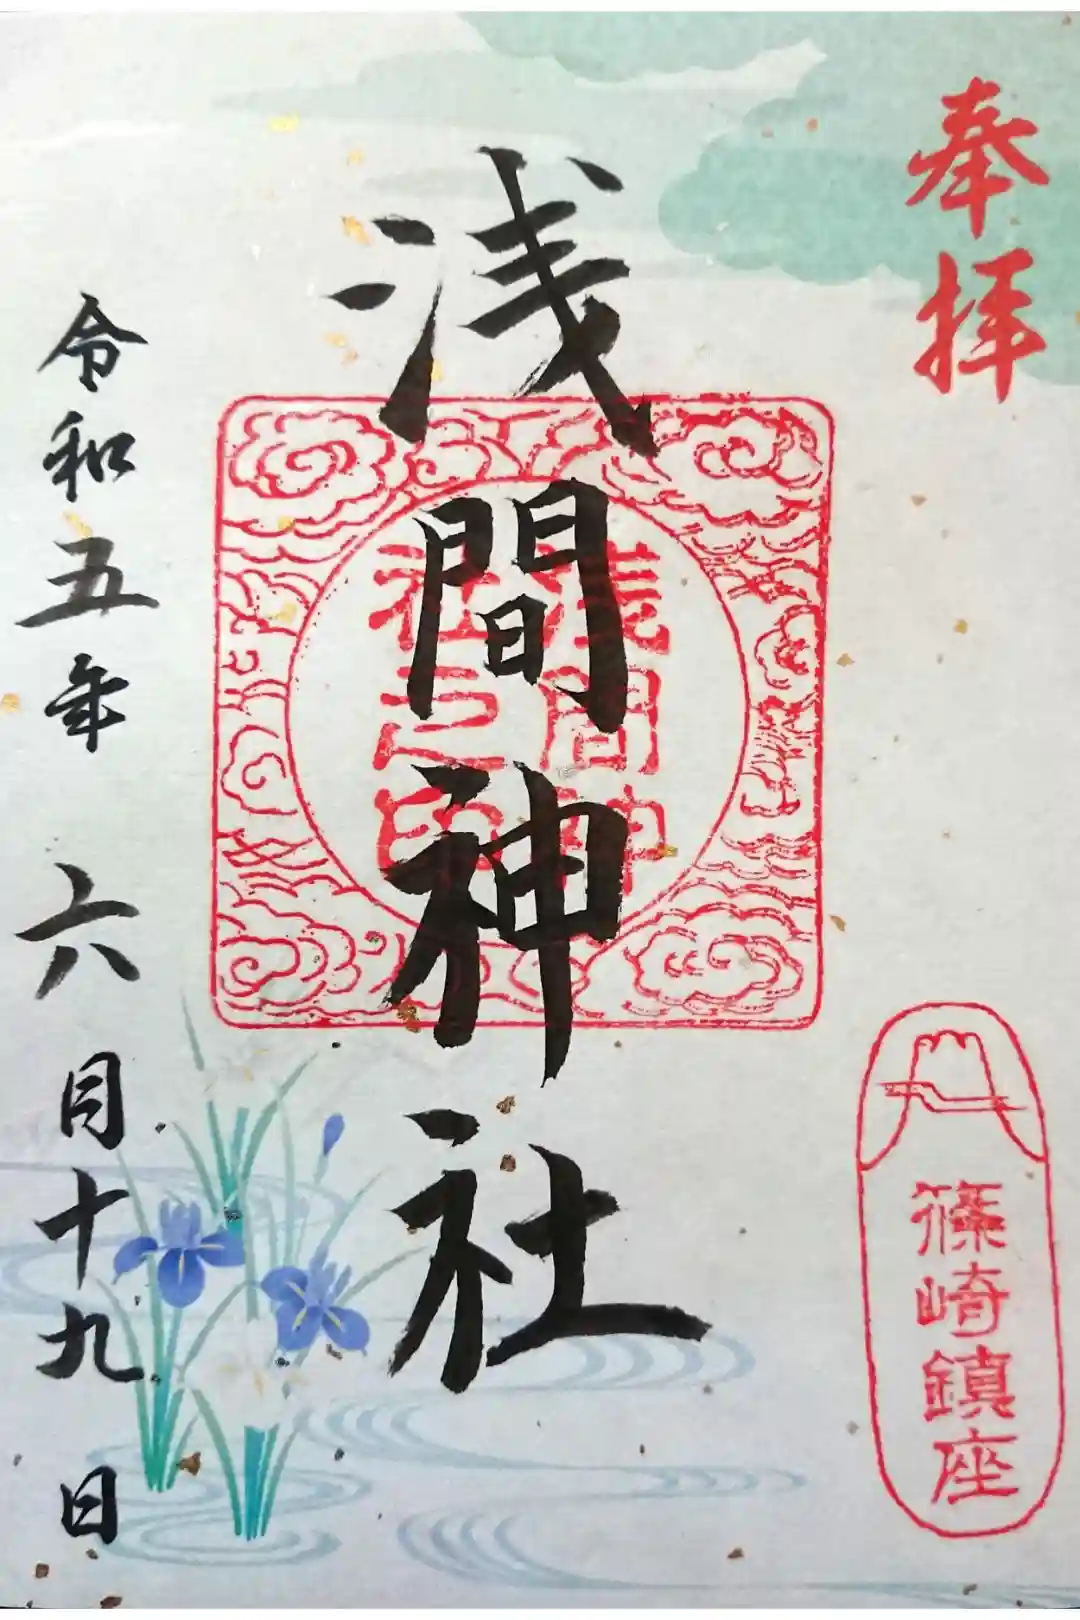 奉拝
篠崎鎮座
浅間神社
浅間神
社之印
令和五年六月十九日